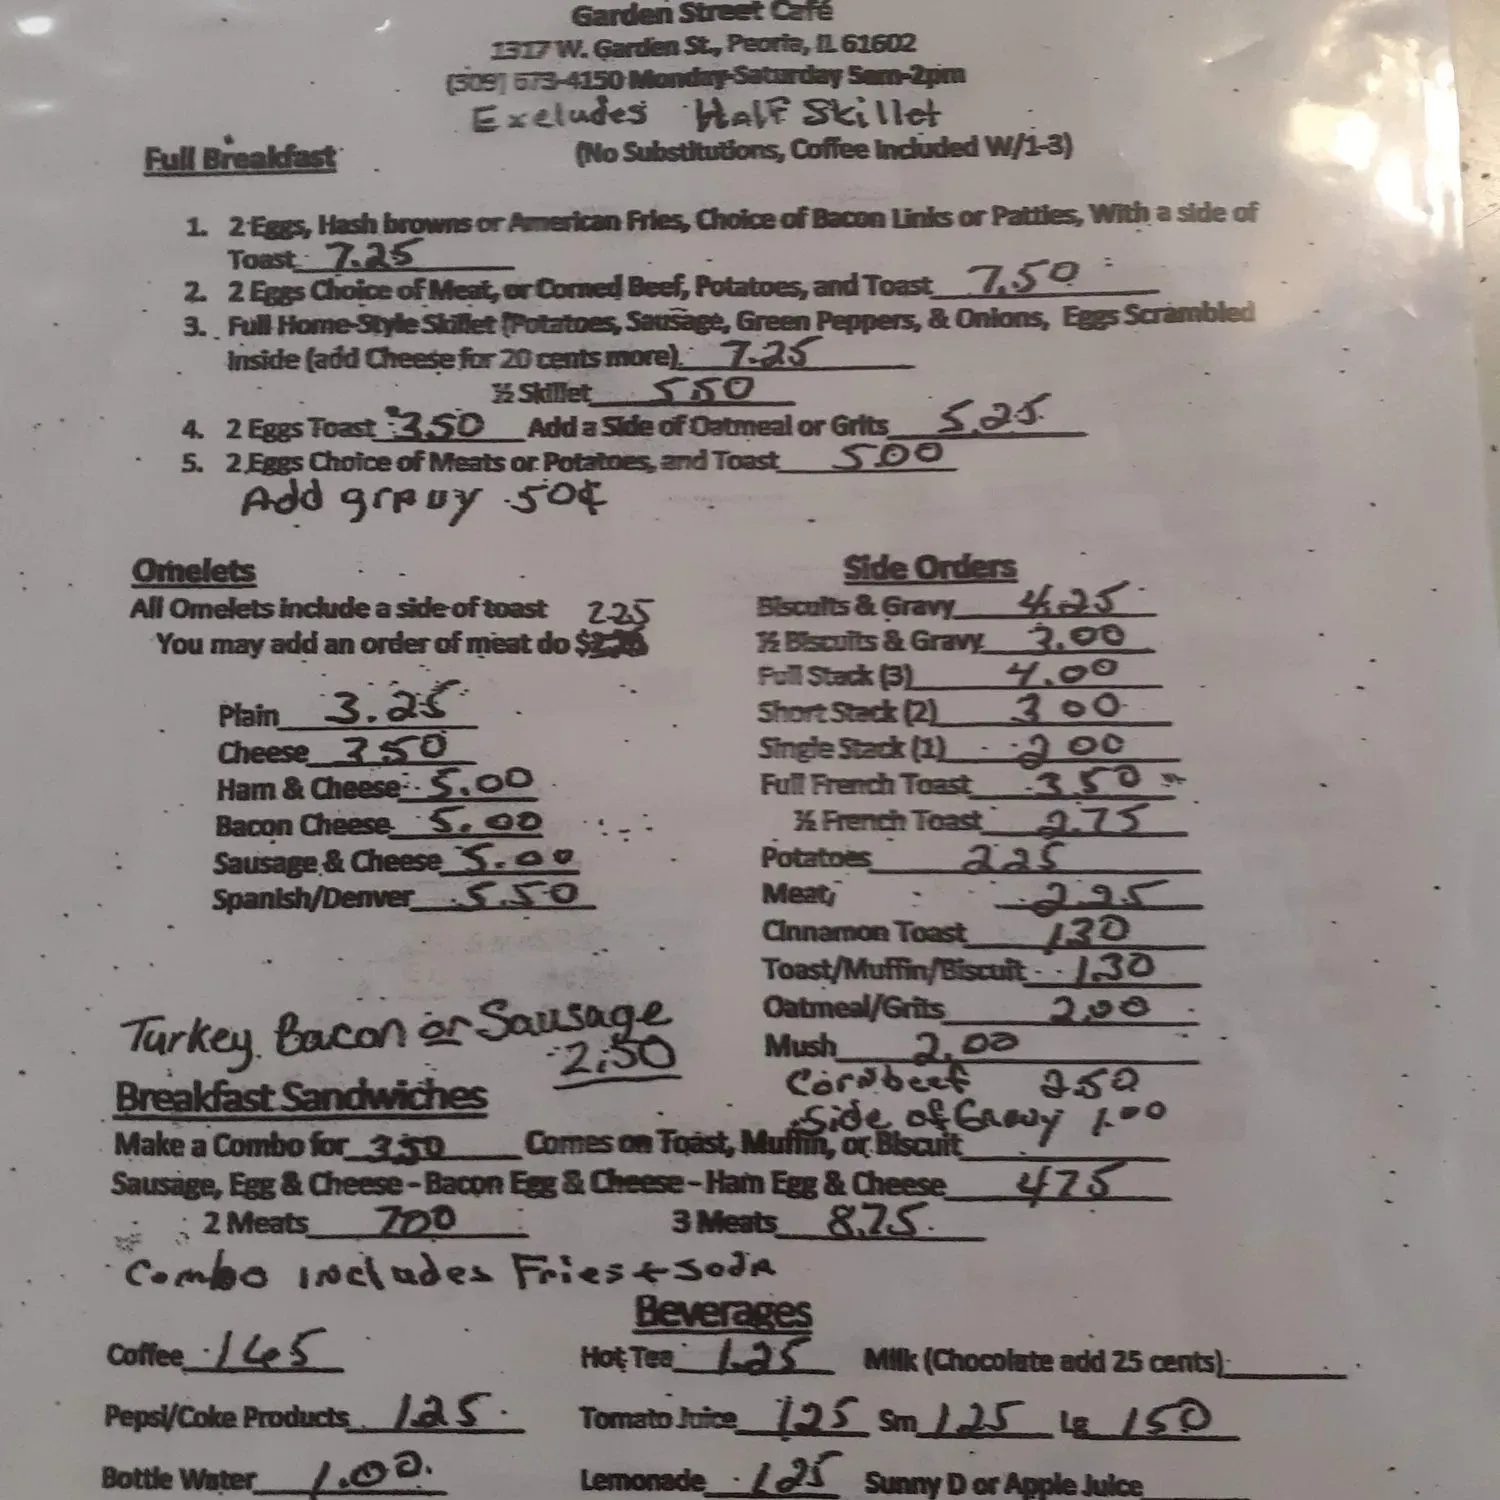 Garden Street Café
1317 W. Garden St., Peoria, IL 61602
(309) 673-4150 Monday-Saturday 5am-2pm
Excludes Half Skillet
Full Breakfast (No Substitutions, Coffee Included W/1-3)
1. 2 Eggs, Hash browns or American Fries, Choice of Bacon Links or Patties, With a side of
Toast 7.25
2. 2 Eggs Choice of Meat, or Corned Beef, Potatoes, and Toast 7.50
3. Full Home-Style Skillet (Potatoes, Sausage, Green Peppers, & Onions, Eggs Scrambled
Inside (add Cheese for 20 cents more). 7.25
½ Skillet 5.50
4. 2 Eggs Toast 3.50 Add a Side of Oatmeal or Grits 5.25
5. 2 Eggs Choice of Meats or Potatoes, and Toast 5.00
Add gravy .50¢
Omelets
All Omelets include a side of toast 2.25
You may add an order of meat do $
Plain 3.25
Cheese 3.50
Ham & Cheese 5.00
Bacon Cheese 5.00
Sausage & Cheese 5.00
Spanish/Denver 5.50
Side Orders
Biscuits & Gravy 4.25
½ Biscuits & Gravy 3.00
Full Stack (3) 4.00
Short Stack (2) 3 00
Single Stack (1) 2 00
Full French Toast 3.50
½ French Toast 2.75
Potatoes 2.25
Meat
Cinnamon Toast 1.30
Toast/Muffin/Biscuit 1.30
Oatmeal/Grits 2.00
Mush 2.00
Cornbeef 2.50
Side of Gravy 1.00
Turkey Bacon or Sausage
2.50
Breakfast Sandwiches
Make a Combo for 3.50 Comes on Toast, Muffin, or Biscuit
Sausage, Egg & Cheese - Bacon Egg & Cheese - Ham Egg & Cheese 4.75
2 Meats 7.00 3 Meats 8.75
Combo includes Fries + Soda
Beverages
Coffee 1.65 Hot Tea 1.25 Milk (Chocolate add 25 cents)
Pepsi/Coke Products 1.25 Tomato Juice 1.25 Sm 1.25 Lg 1.50
Bottle Water 1.00 Lemonade 1.25 Sunny D or Apple Juice